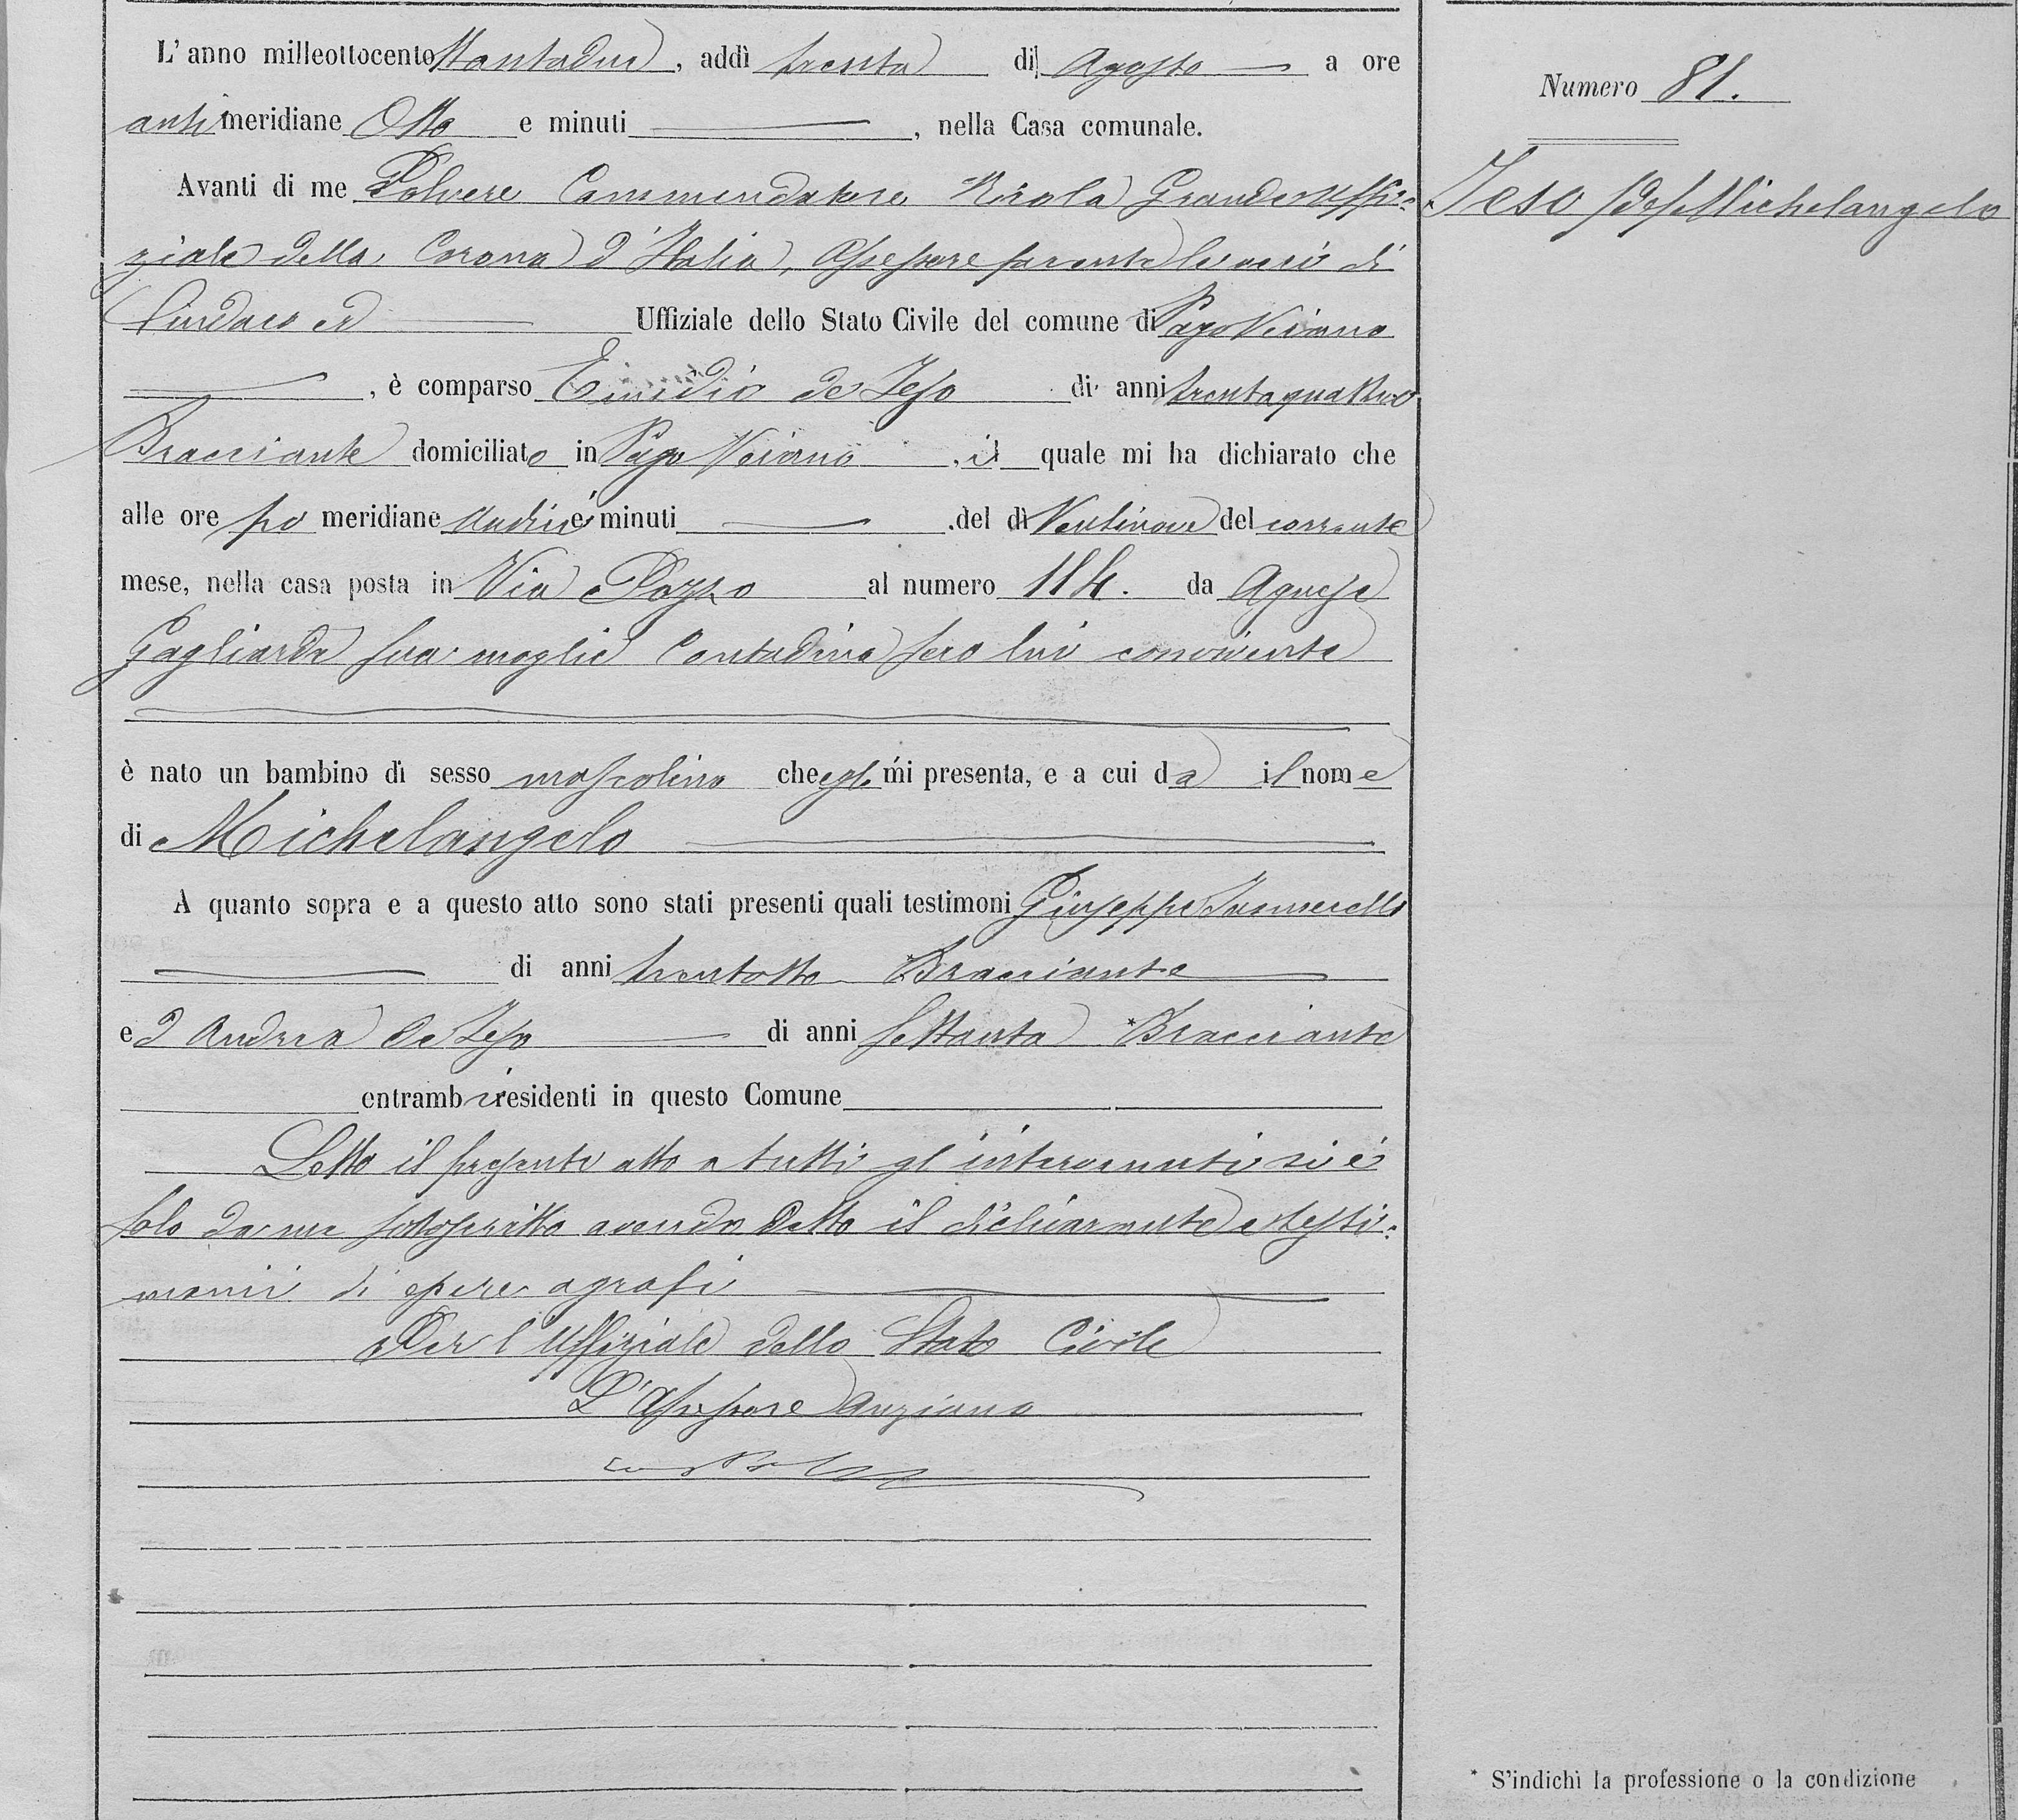 L'anno milleottocento ottantadue, addì trenta di Agosto a ore
anti meridiane Otto e minuti , nella Casa comunale.
Avanti di me Polvere Commendatore Nicola Grande Uffi=
ziale della Corona d'Italia, Assessore facente le veci di
Sindaco ed Uffiziale dello Stato Civile del comune di Pago Veiano
, è comparso Emidio de Ieso di anni trentaquattro
Bracciante domiciliato in Pago Veiano , il quale mi ha dichiarato che
alle ore po meridiane undici e minuti del dì Ventinove del corrente
mese, nella casa posta in Via Pozzo al numero 114. da Agnese
Gagliarda sua moglie Contadina seco lui convivente
è nato un bambino di sesso mascolino che egli mi presenta, e a cui da il nome
di Michelangelo
A quanto sopra e a questo atto sono stati presenti quali testimoni Giuseppe
di anni trentotto * Bracciante
ed Andrea de Ieso di anni settanta * Bracciante
entrambi residenti in questo Comune
Letto il presente atto a tutti gl'intervenuti si è
solo da me sottoscritto avendo detto il dichiarante e testi=
monii di essere agrafi
Per l'Uffiziale dello Stato Civile
L'Assessore Anziano
Numero 81.
Ieso (de) Michelangelo
* S'indichi la professione o la condizione